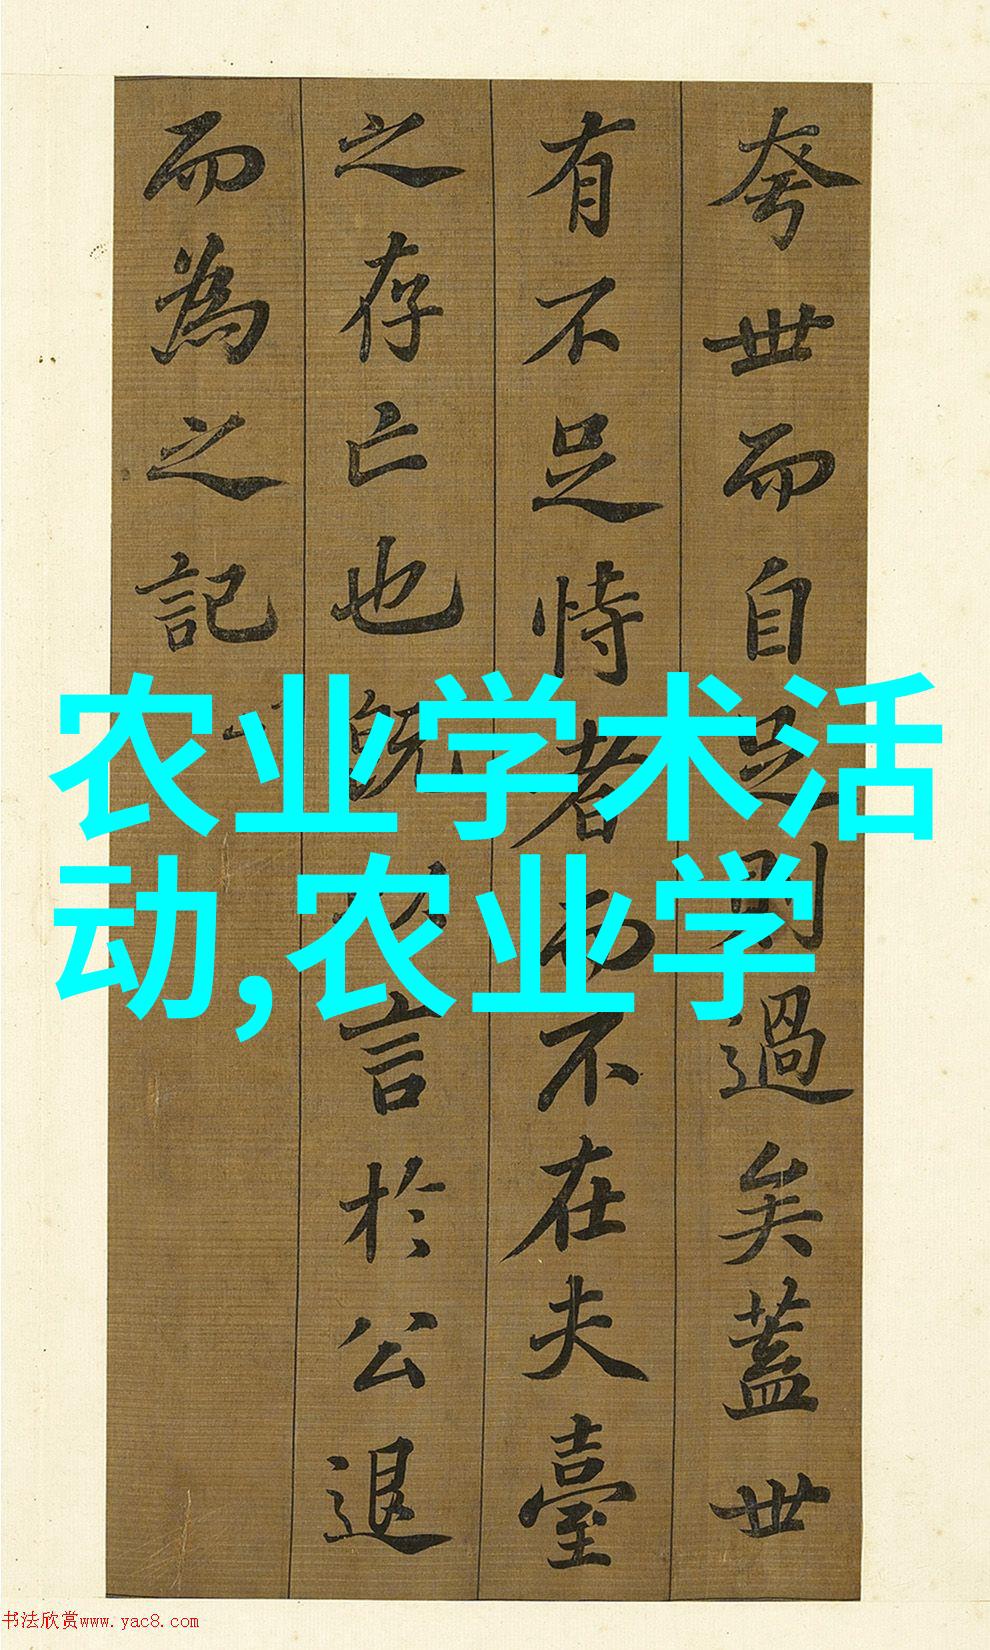 夸世而自足則過矣蓋世
有不足恃者而不在夫臺
之存亡也既以言於公退
而為之記
农业学术活
动,农业学
书法欣赏www.yac8.com